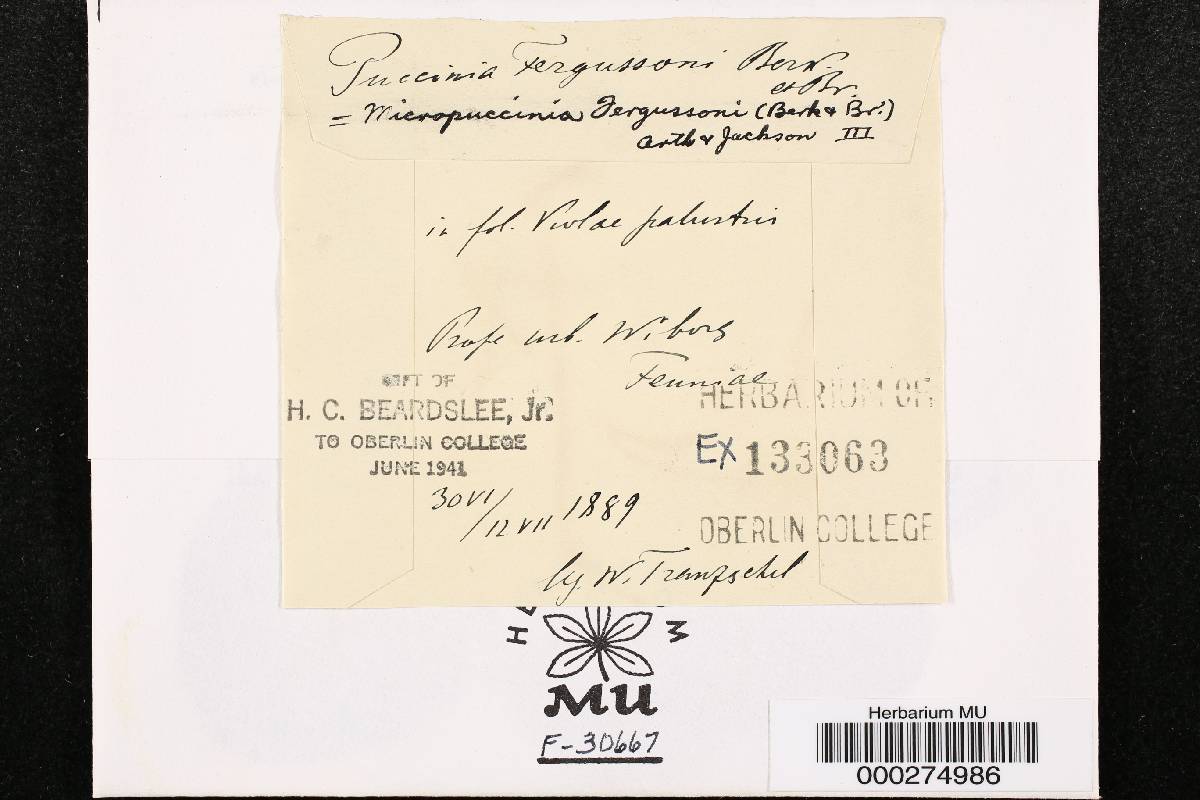 Puccinia Fergussoni Berk.
et Br.
= Micropuccinia Fergussoni (Berk & Br.)
Arth & Jackson III
in fol. Violae palustris
Prope urb. Wiborg
Fenniae
GIFT OF
H. C. BEARDSLEE, Jr.
TO OBERLIN COLLEGE
JUNE 1941
HERBARIUM OF
EX 133063
OBERLIN COLLEGE
30 VI/12 VII 1889
lg. W. Tranzschel
MU
F-30667
Herbarium MU
000274986